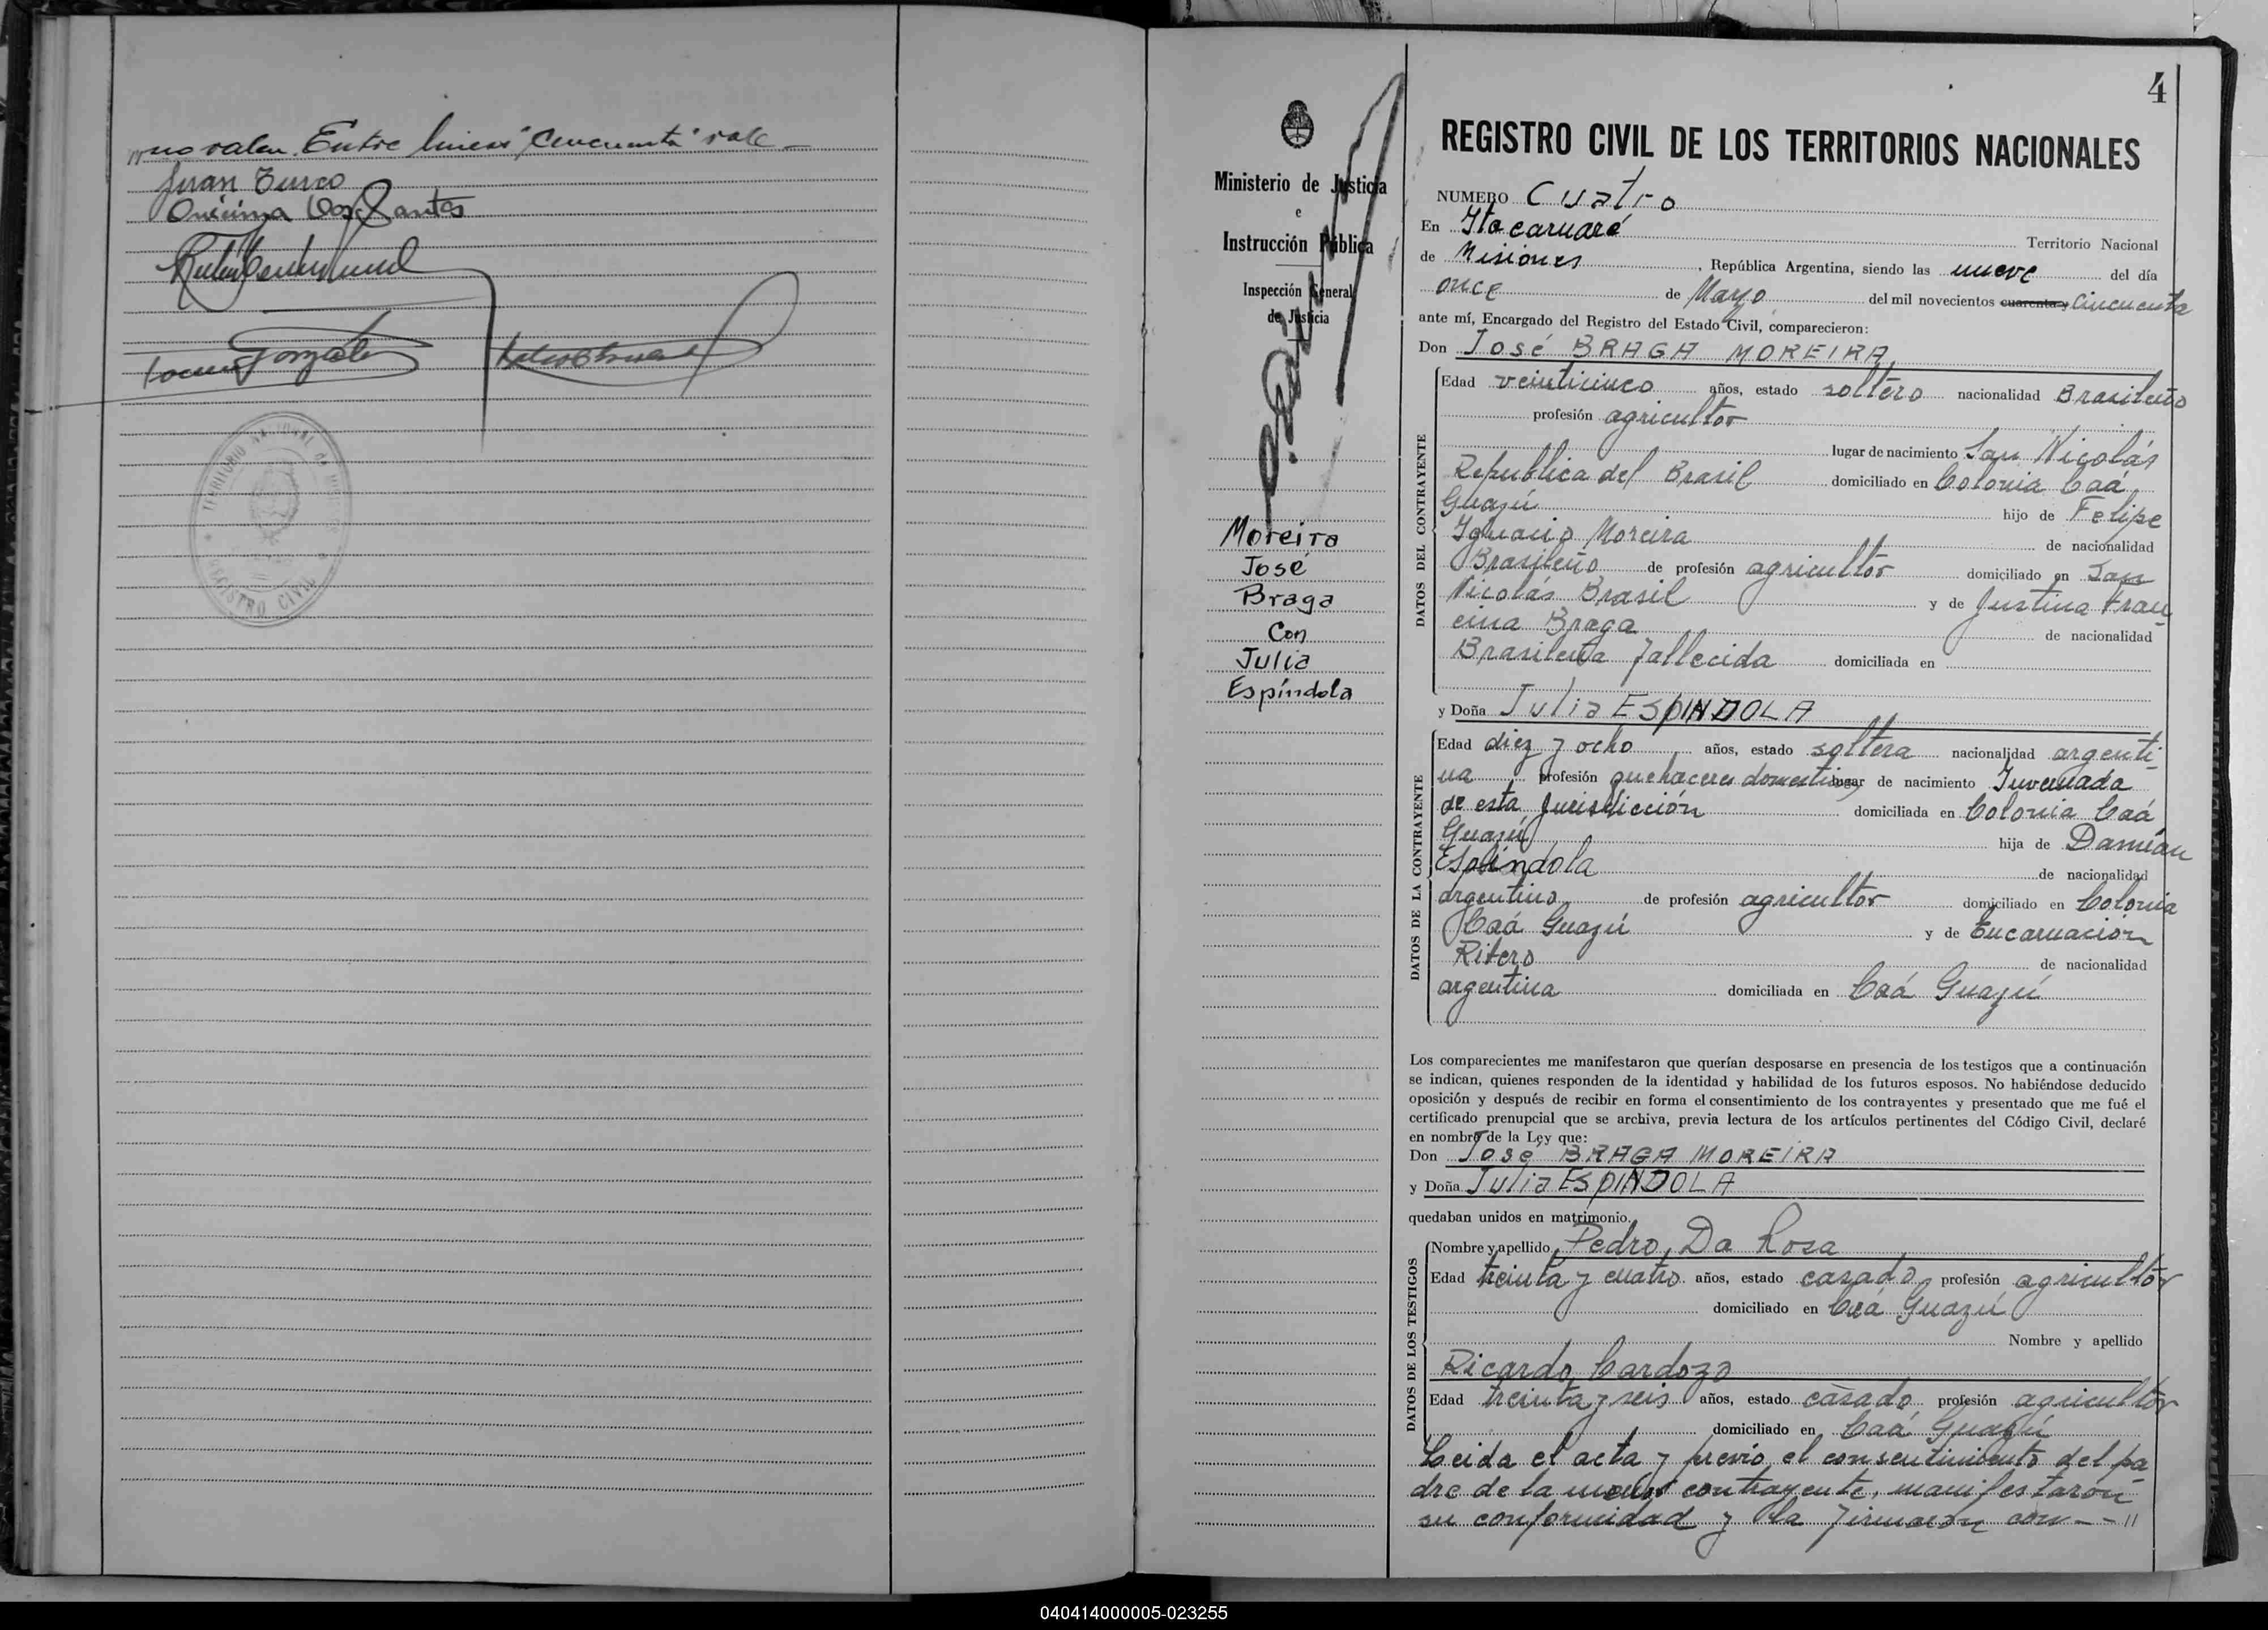 "no valen. Entre lineas "Cincuenta" vale –
Juan Turco
Onécima Dos Santos
González
TERRITORIO NACIONAL de MISIONES
REGISTRO CIVIL
4
Ministerio de Justicia
e
Instrucción Pública
Inspección General
de Justicia
Moreira
José
Braga
Con
Julia
Espíndola
REGISTRO CIVIL DE LOS TERRITORIOS NACIONALES
NUMERO Cuatro
En Itacaruaré Territorio Nacional
de Misiones, República Argentina, siendo las nueve del día
once de Mayo del mil novecientos cuarenta y Cincuenta
ante mí, Encargado del Registro del Estado Civil, comparecieron:
Don José BRAGA MOREIRA
DATOS DEL CONTRAYENTE
Edad veinticinco años, estado soltero nacionalidad Brasileño
profesión agricultor
lugar de nacimiento San Nicolás
Republica del Brasil domiciliado en Colonia Caá
Guazú hijo de Felipe
Ignacio Moreira de nacionalidad
Brasileño de profesión agricultor domiciliado en San
Nicolás Brasil y de Justina Fran
cina Braga de nacionalidad
Brasileña fallecida domiciliada en
y Doña Julia ESPINDOLA
DATOS DE LA CONTRAYENTE
Edad diez y ocho años, estado soltera nacionalidad argenti-
na profesión quehaceres domesticos lugar de nacimiento Invernada
de esta Jurisdicción domiciliada en Colonia Caá
Guazú hija de Damián
Espíndola de nacionalidad
argentino de profesión agricultor domiciliado en Colonia
Caá Guazú y de Encarnación
Ritero de nacionalidad
argentina domiciliada en Caá Guazú
Los comparecientes me manifestaron que querían desposarse en presencia de los testigos que a continuación
se indican, quienes responden de la identidad y habilidad de los futuros esposos. No habiéndose deducido
oposición y después de recibir en forma el consentimiento de los contrayentes y presentado que me fué el
certificado prenupcial que se archiva, previa lectura de los artículos pertinentes del Código Civil, declaré
en nombre de la Ley que:
Don José BRAGA MOREIRA
y Doña Julia ESPINDOLA
quedaban unidos en matrimonio.
DATOS DE LOS TESTIGOS
Nombre y apellido Pedro Da Rosa
Edad treinta y cuatro años, estado casado profesión agricultor
domiciliado en Caá Guazú
Nombre y apellido
Ricardo Cardozo
Edad treinta y seis años, estado casado profesión agricultor
domiciliado en Caá Guazú
Leida el acta y previo el consentimiento del pa-
dre de la menor contrayente, manifestaron
su conformidad y la firmaron con – – "
040414000005-023255